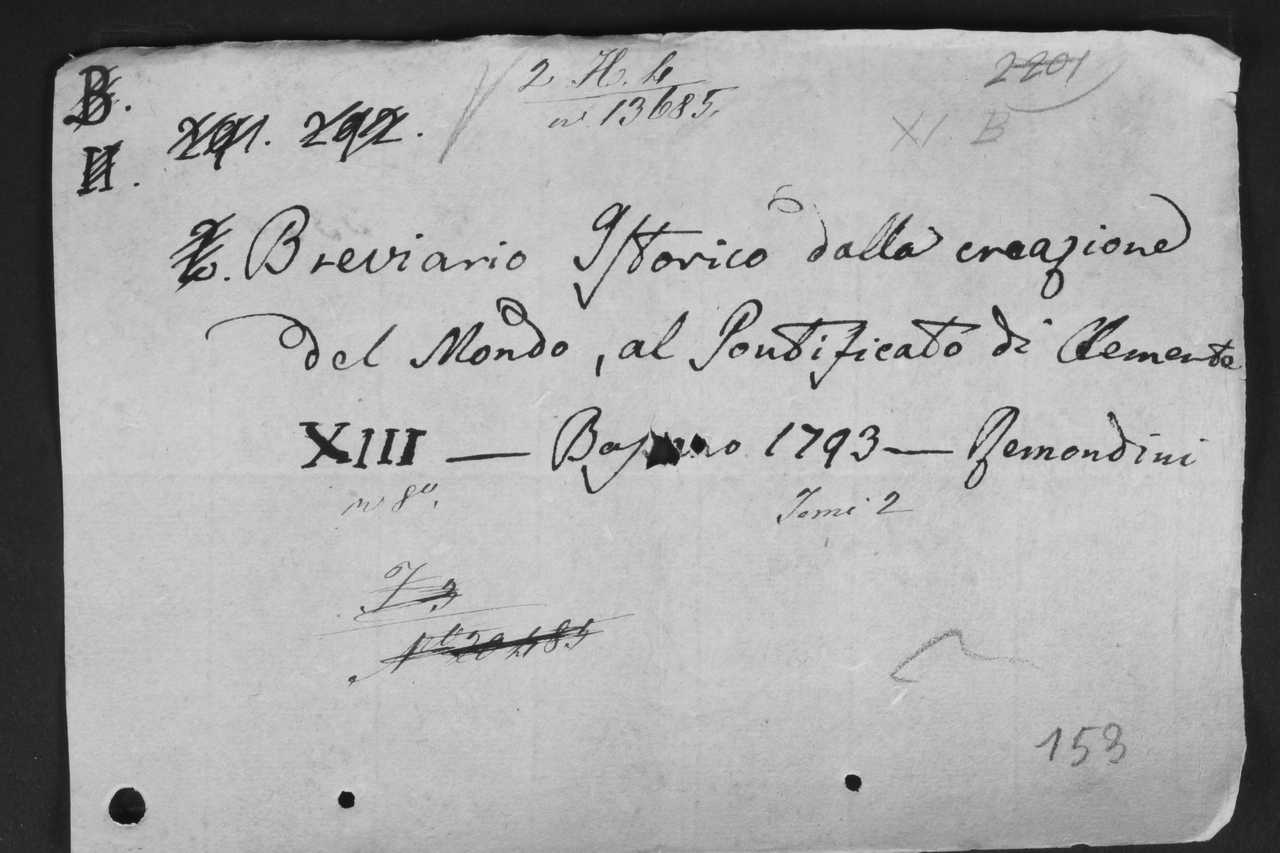 B.
2 H. h
2201
n. 13685.
XI. B
291. 292.
II.
Breviario Istorico dalla creazione
del Mondo, al Pontificato di Clemente
XIII — Bassano 1793 — Remondini
in 8º.
Tomi 2
T 3
153